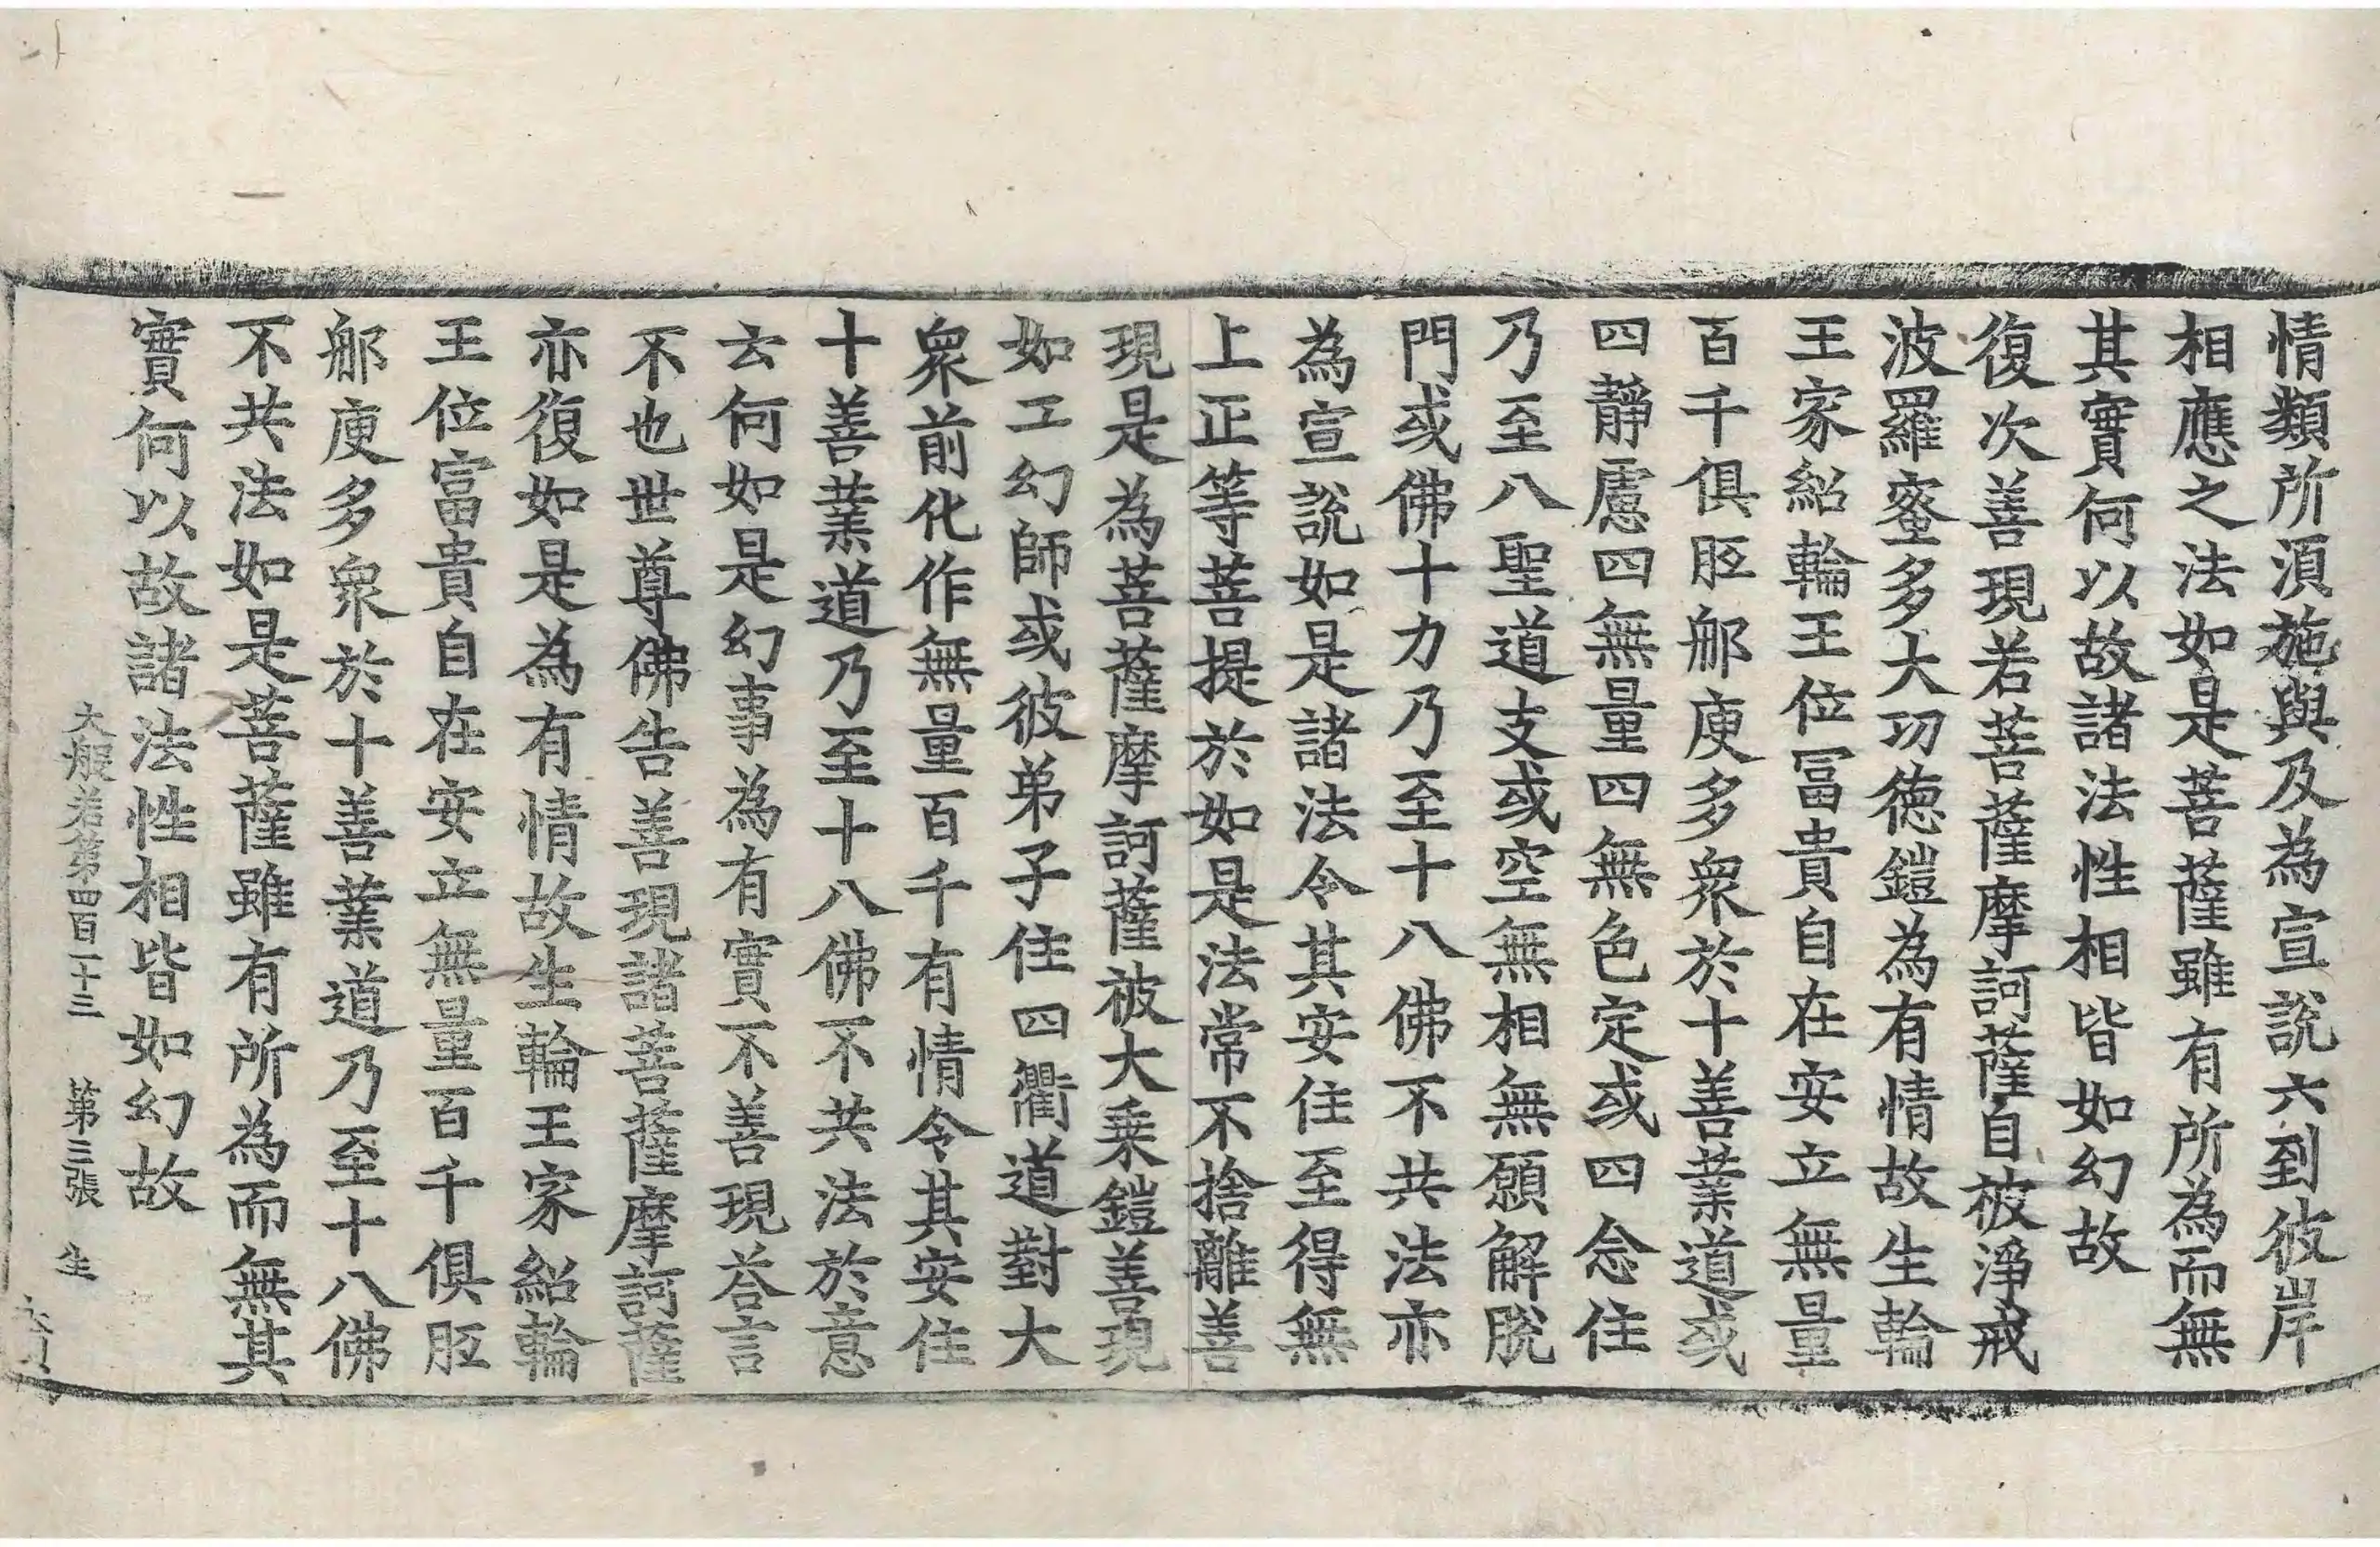 情類所湏施與及為宣說六到彼岸
相應之法如是菩薩雖有所為而無
其實何以故諸法性相皆如幻故
復次善現若菩薩摩訶薩自被淨戒
波羅蜜多大功德鎧為有情故生輪
王家紹輪王位冨貴自在安立無量
百千俱胝郍庾多衆於十善業道或
四靜慮四無量四無色定或四念住
乃至八聖道支或空無相無願解脫
門或佛十力乃至十八佛不共法亦
為宣說如是諸法令其安住至得無
上正等菩提於如是法常不捨離善
現是為菩薩摩訶薩被大乗鎧善現
如工幻師或彼弟子住四衢道對大
衆前化作無量百千有情令其安住
十善業道乃至十八佛不共法於意
云何如是幻事為有實不善現荅言
不也世尊佛告善現諸菩薩摩訶薩
亦復如是為有情故生輪王家紹輪
王位富貴自在安立無量百千俱胝
郍庾多衆於十善業道乃至十八佛
不共法如是菩薩雖有所為而無其
實何以故諸法性相皆如幻故
大般若第四百一十三 第三張 生